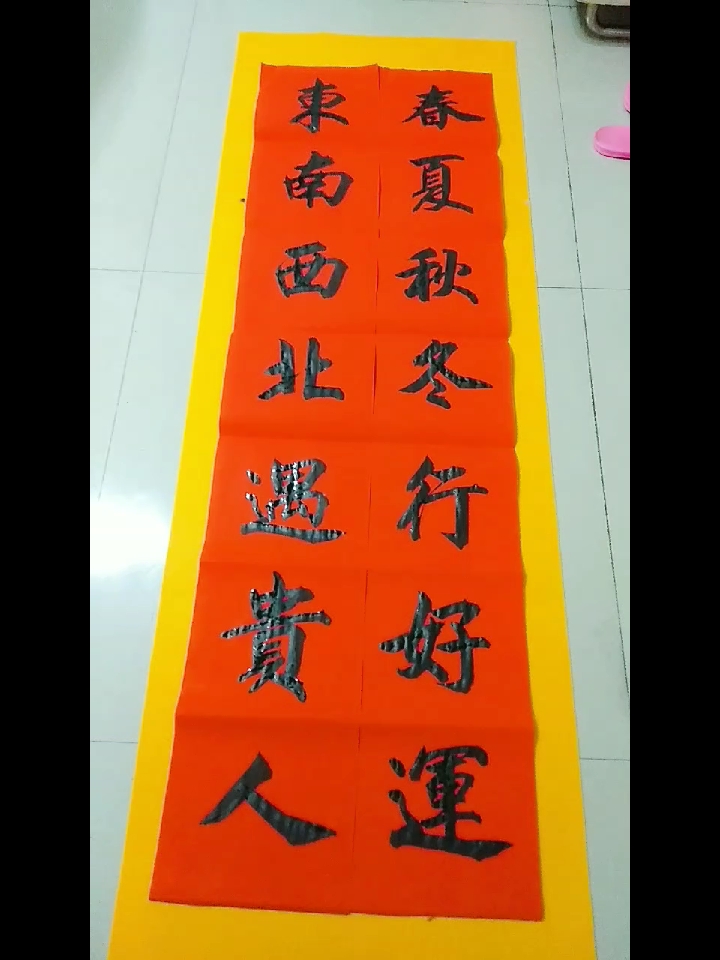 春夏秋冬行好運
東南西北遇貴人